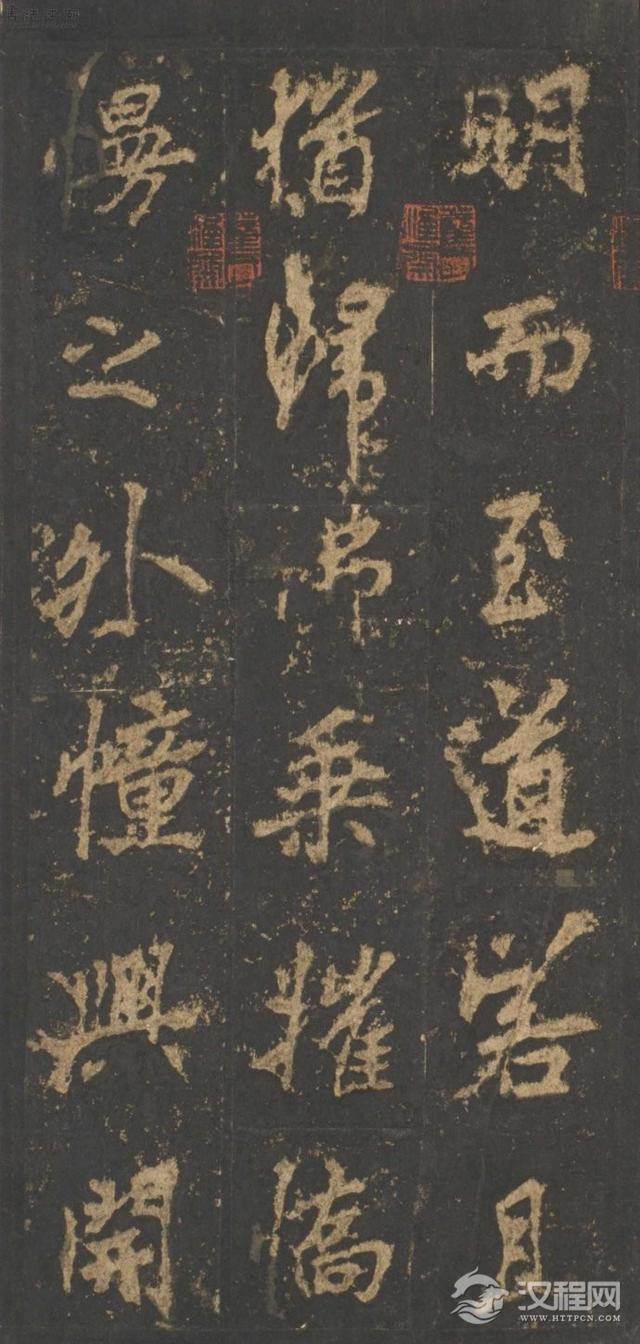 明而至道若月
猶歸佛乘摧憍
慢之外幢興開
汉程网
WWW.HTTPCN.COM